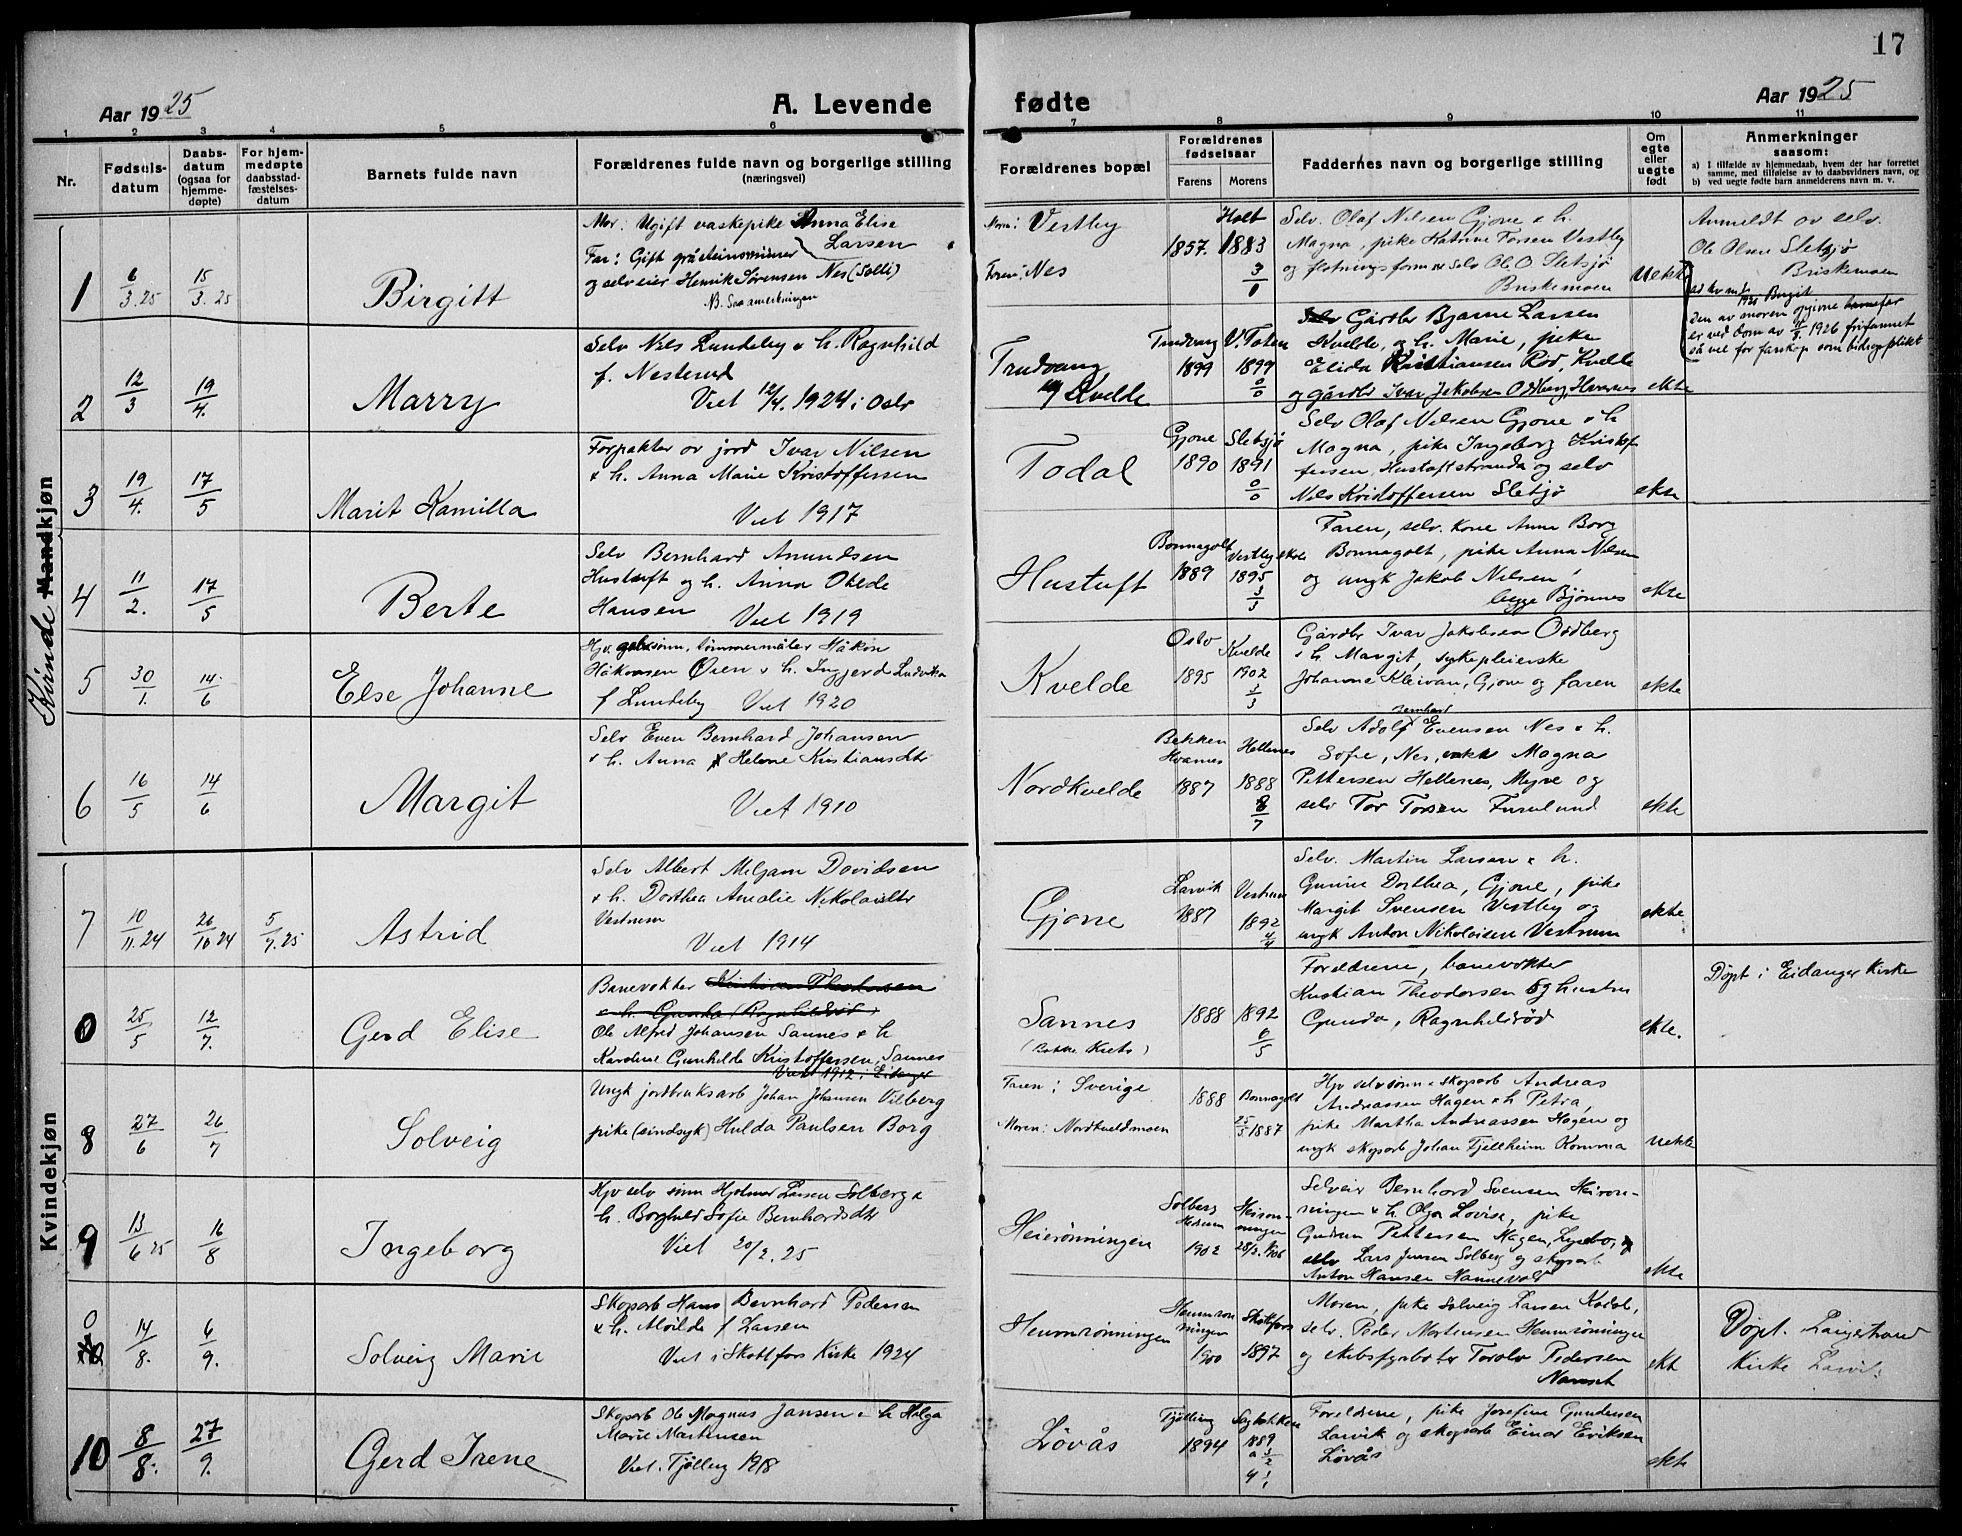 17
Aar 1925
A. Levende
fødte
Aar 1925
1 2 3 4 5 6 7 8 9 10 11
Nr.
Fødsels-datum
Daabs-datum (ogsaa for hjemme-døpte)
For hjem-medøpte daabsstad-fæstelses-datum
Barnets fulde navn
Forældrenes fulde navn og borgerlige stilling
(næringsvei)
Forældrenes bopæl
Forældrenes fødselsaar
Farens. Morens.
Faddernes navn og borgerlige stilling
Om egte eller uegte født
Anmerkninger
saasom:
a) I tilfælde av hjemmedaab, hvem der har forrettet
samme, med tilføielse av to daabsvidners navn, og
b) ved uegte fødte barn anmelderens navn m. v.
Kvinde Mandkjøn
Kvindekjøn
1 6/3.25 15/3.25 Birgitt
Mor: Ugift vaskepike Anna Elise
Larsen
Far: Gift gråsteinsminer
og selveier Henrik Sørensen Nes (Solli)
Moren: Vestby
Faren: Nes
1857. Holt 1883 3/0
Selv. Olaf Nilsen Gjone & h.
Magna, pike Katrine Torsen Vestby
og fløtningsform selv Ole O. Sletsjø
Briskemoen
Uekte
Anmeldt av selv.
Ole Olsen Sletsjø
Briskemoen
Den av moren opgivne barnefar
er ved dom av 1926 frifunnet
så vel for farskap som bidragsplikt
2 12/3 19/4. Marry
Selv Nils Lundeby & h. Ragnhild
f. Nesterud
Viet 12/4. 1924 i Oslo
Trudvang
Kvelde
Trudvang 1899 V. Toten 1899 0/0
Selv Gårdbr Bjarne Larsen
Kvelde, og h. Marie, pike
Elida Kristiansen Rød, Kvelde
og gårdbr Ivar Jakobsen Odberg, Hvarnes
ekte
3 19/4. 17/5 Marit Kamilla
Forpakter av jord Ivar Nilsen
& h. Anna Marie Kristoffersen
Viet 1917
Todal
Gjone 1890 Sletsjø 1891 0/0
Selv Olaf Nilsen Gjone & h
Magna, pike Ingeborg Kristof
fersen, Hustuftstranda og selv
Nils Kristoffersen Sletsjø
ekte
4 11/2. 17/5 Berte
Selv Bernhard Amundsen
Hustuft og h. Anna Otilde
Hansen Viet 1919
Hustuft
Bonnagolt 1889 Vestby 1895 3/3
Faren, selv. kone Anna Borg
Bonnagolt, pike Anna Nilsen
og ungk Jakob Nilsen,
begge Bjønnes
ekte
5 30/1. 14/6 Else Johanne
Hjv. gbrsønn, tømmermåler Håkon
Håkonsen Øien & h. Inggerd Ludvikka
f Lundeby Viet 1920
Kvelde
Oslo 1895 Kvelde 1902 3/3
Gårdbr Ivar Jakobsen Oddberg
& h. Margit, sykepleierske
Johanne Kleivan, Gjone og faren
ekte
6 16/5 14/6 Margit
Selv Even Bernhard Johansen
& h. Anna Helene Kristiansdtr
Viet 1910
Nordkvelde
Bekken Hvarnes 1887 Hellenes 1888 8/7
Bernhard
Selv Adolf Evensen Nes & h.
Sofie, Nes, Magna
Pettersen Hellenes, Myre og
selv Tor Torsen Furulund
ekte
7 10/11.24 26/10 24 5/7.25 Astrid
Selv Albert Melgam Davidsen
& h. Dorthea Amalie Nikolaidtr
Vestrum
Viet 1914
Gjone
Larvik 1887 Vestrum 1892 4/4
Selv. Martin Larsen & h.
Gunine Dorthea, Gjone, pike
Margit Svensen Vestby og
ungk Anton Nikolaisen Vestrum
ekte
0 25/5 12/7. Gerd Elise
Banevokter Kristian Theodorsen
& h. Gunda (Ragnhildrød)
Ole Alfred Johansen Sannes & h
Karoline Gunhilde Kristoffersen, Sannes
Viet 1912 i Eidanger
Sannes
(Bakke Krets)
1888 1892 6/5
Foreldrene, banevokter
Kristian Theodorsen og hustru
Gunda, Ragnhildrød
ekte.
Døpt i Eidanger Kirke
8 27/6 26/7 Solveig
Ungk jordbruksarb Johan Johansen Vilberg
pike (sindsyk) Hulda Paulsen Borg
Faren: Sverige
Moren: Nordkveldmoen
1888 Bonnagolt 25/5 1887
Hjv selv sønn & skogsarb Andreas
Andreassen Hagen & h Petra,
pike Martha Andreassen Hagen og
ungk skogsarb Johan Fjellheim Komma
Uekte
9 13/6 25 16/8 Ingeborg
Hjv selv sønn Hjalmar Larsen Solberg &
h. Borghild Sofie Bernhardsdtr
Viet 20/2. 25
Heierønningen
Solberg Hedrum 1902 Heiron-ningen 28/2. 1906
Selveir Bernhard Svensen Heiron-
ningen & h. Olga Lovise, pike
Gudrun Pettersen Hagen, Lysebo, og
selv Lars Jensen Solberg og skogsarb
Anton Hansen Hannevold
ekte
0 14/8. 6/9. Solveig Marie
Skogsarb Hans Bernhard Pedersen
& h. Alvilde f Larsen
Viet i Skotfoss Kirke 1924
Hemmrønningen
Hemmron ningen 1900 Skotfoss 1897
Moren, pike Solveig Larsen Kodal,
selv. Peder Mortensen Hemmrønningen
og skibsfyrbøter Torolv Pedersen
Nanset
ekt
Døpt. Langestrand
Kirke Larvik
10 8/8. 27/9. Gerd Irene
Skogsarb Ole Magnus Jansen & h Helga
Marie Martinsen
Viet. Tjølling 1918
Løvås
Tjølling 1894 Sagbakken 1889
Foreldrene, pike Josefine Gundersen
Larvik og skogsarb Einar Eriksen
Løvås
ekte